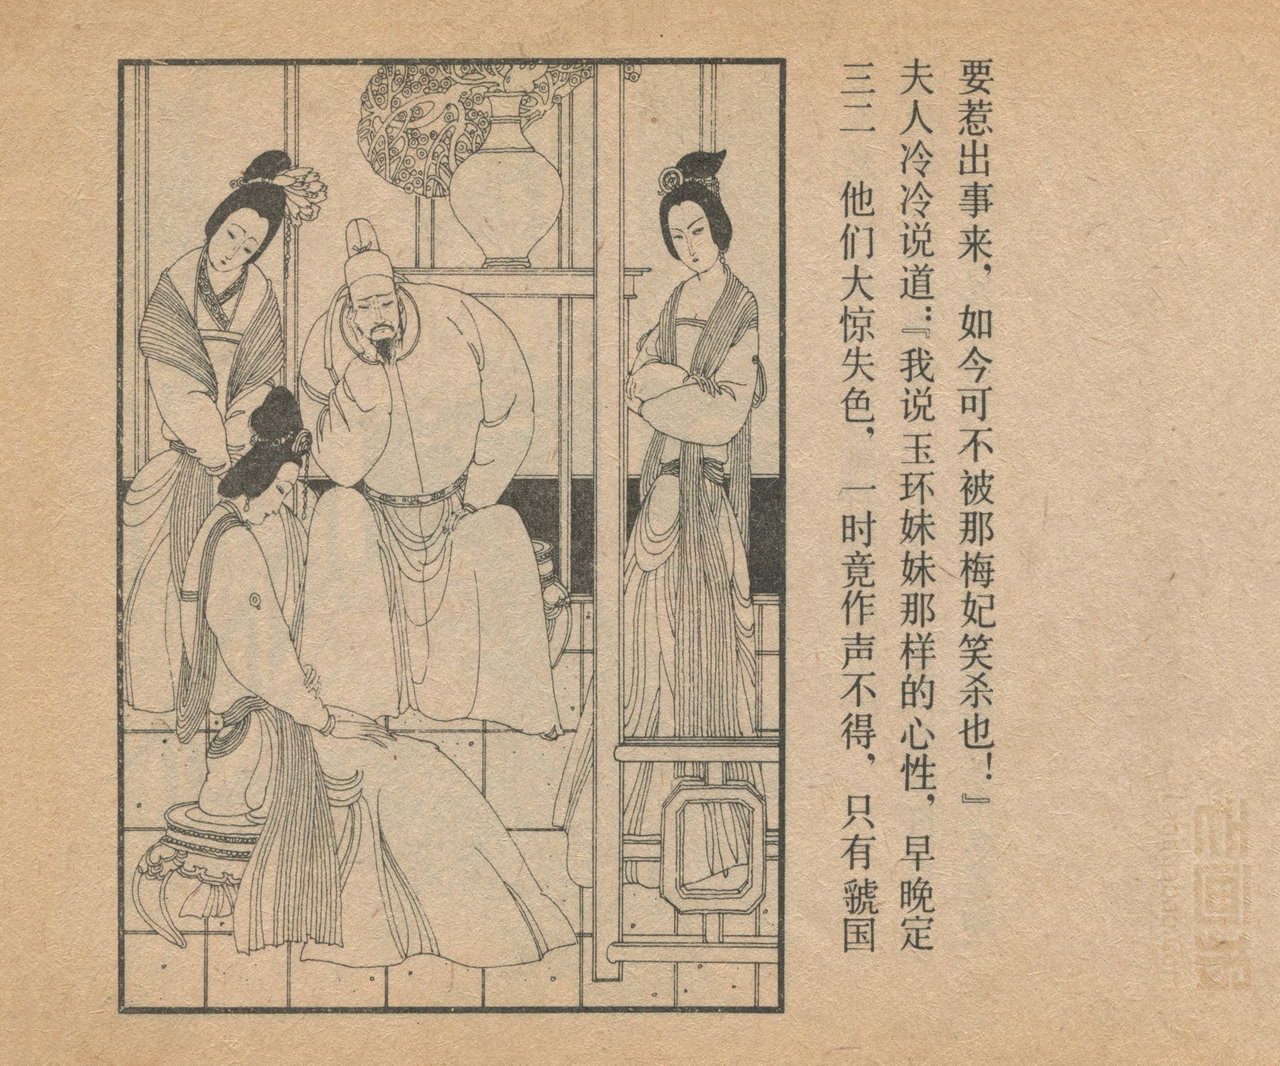 三二　他们大惊失色，一时竟作声不得，只有虢国
夫人冷冷说道：『我说玉环妹妹那样的心性，早晚定
要惹出事来，如今可不被那梅妃笑杀也！』